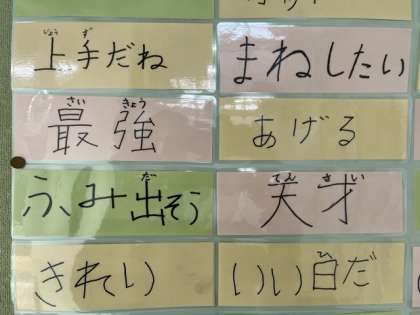 じょう ず
上手だね
まねしたい
さい きょう
最強
あげる
だ
ふみ出そう
てん さい
天才
きれい
ひ
いい日だ